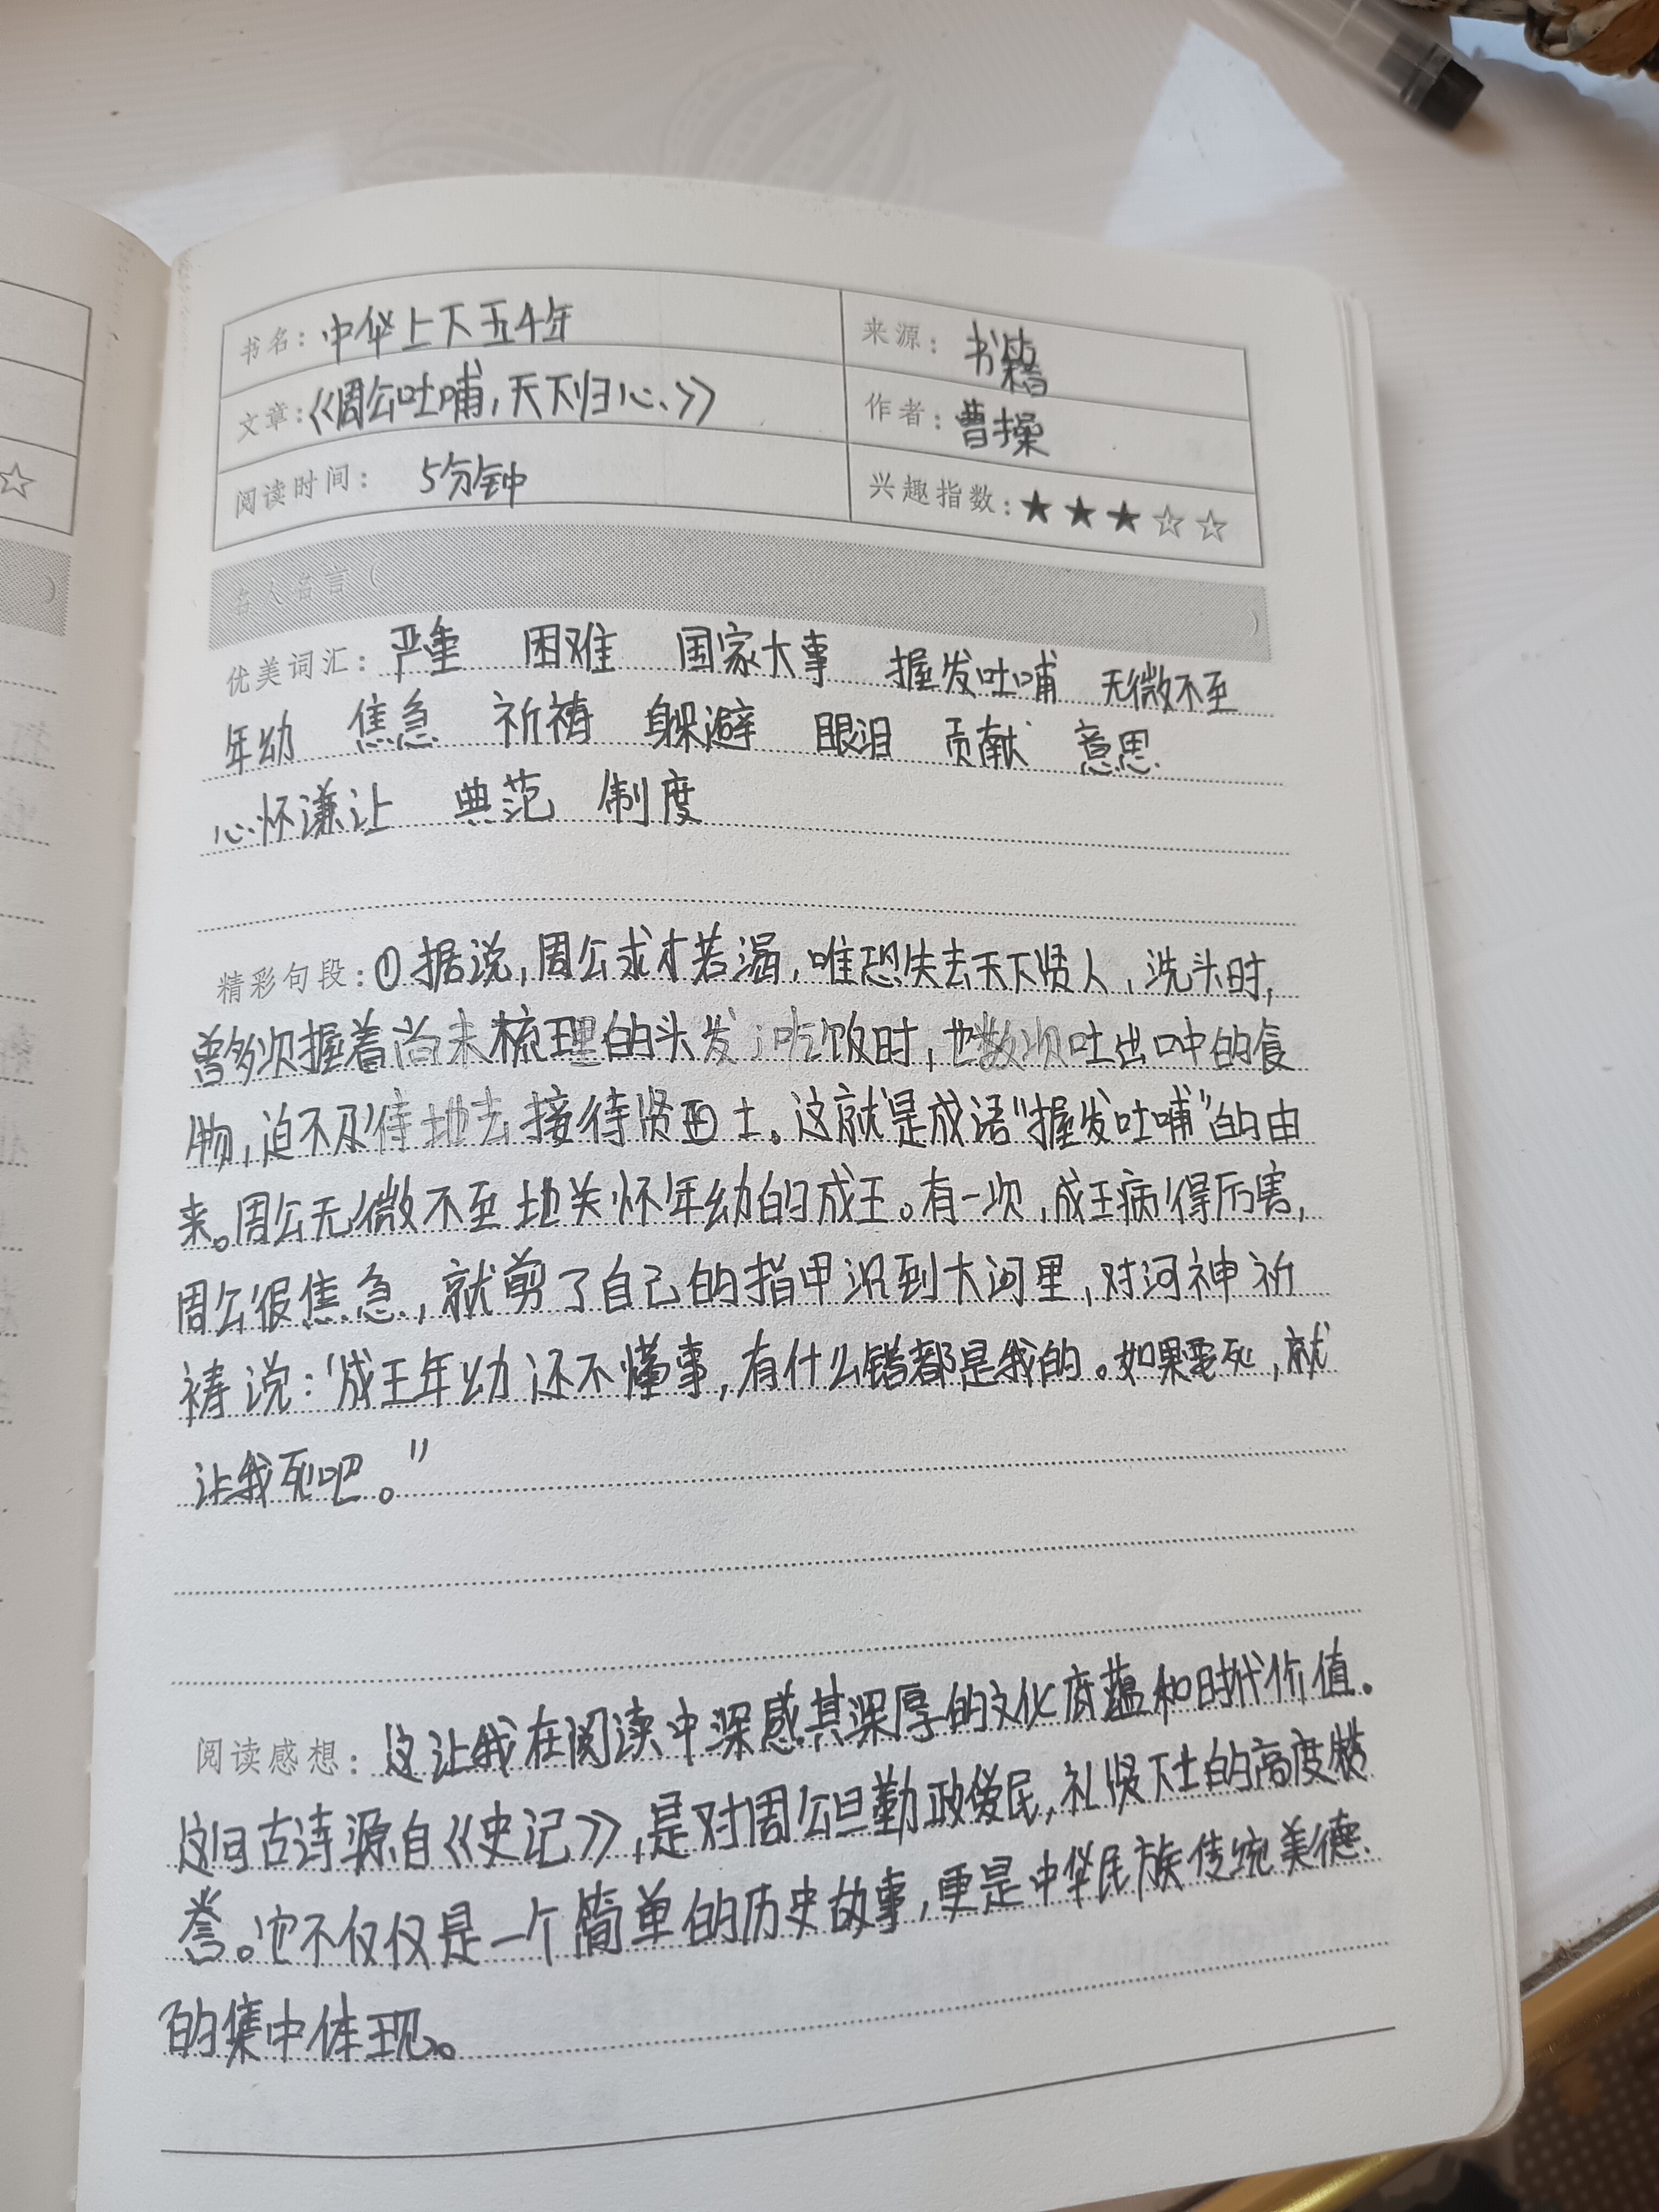 书名：中华上下五千年 来源：书籍
文章：《周公吐哺，天下归心》 作者：曹操
阅读时间：5分钟 兴趣指数：★★★☆☆
名人名言（ ）
优美词汇：严重 困难 国家大事 握发吐哺 无微不至
年幼 焦急 祈祷 躲避 眼泪 贡献 意思
心怀谦让 典范 制度
精彩句段：①据说，周公求才若渴，唯恐失去天下贤人，洗头时，
曾多次握着尚未梳理的头发；吃饭时，也数次吐出口中的食
物，迫不及待地去接待贤士。这就是成语"握发吐哺"的由
来。周公无微不至地关怀年幼的成王。有一次，成王病得厉害，
周公很焦急，就剪了自己的指甲沉到大河里，对河神祈
祷说："成王年幼还不懂事，有什么错都是我的。如果要死，就
让我死吧。"
阅读感想：这让我在阅读中深感其深厚的文化底蕴和时代价值。
这句古诗源自《史记》，是对周公旦勤政爱民，礼贤下士的高度赞
誉。它不仅仅是一个简单的历史故事，更是中华民族传统美德
的集中体现。